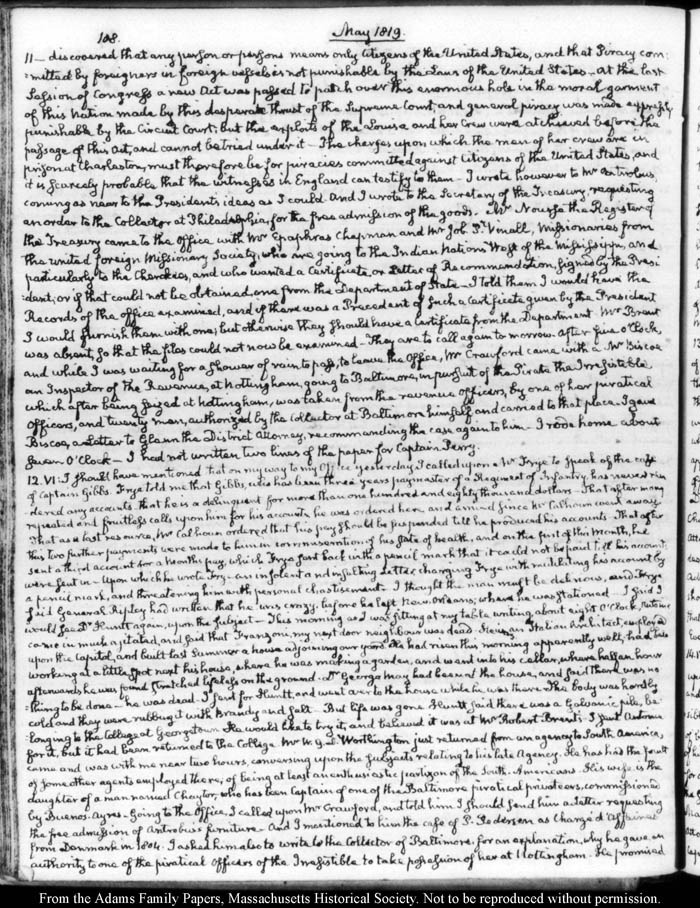 108.
May 1819.
11— discovered that any person or persons means only Citizens of the United States, and that Piracy com-
-mitted by foreigners in foreign vessels is not punishable by the Laws of the United States— At the last
Session of Congress a new Act was passed to patch over this enormous hole in the moral garment
of this Nation made by this desperate thrust of the Supreme Court, and general piracy was made expressly
punishable by the Circuit Court; but the exploits of the Louisa and her Crew were atchieved before the
passage of this Act, and cannot be tried under it— The charges upon which the men of her crew are in
prison at Charleston, must therefore be for piracies committed against citizens of the United States, and
it is scarcely probable that the witnesses in England can testify to them— I wrote however to Mr Antrobus,
coming as near to the President's ideas as I could. And I wrote to the Secretary of the Treasury, requesting
an order to the Collector at Philadelphia, for the free admission of the goods. Mr Nourse the Register of
the Treasury came to the Office with Mr Epaphras Chapman and Mr Job P. Vinall, Missionaries from
the united foreign Missionary Society, who are going to the Indian Nations West of the Mississippi, and
particularly to the Cherokees, and who wanted a Certificate, or Letter of Recommendation, signed by the Presi-
-dent; or if that could not be obtained, one from the Department of State— I told them I would have the
Records of the office examined, and if there was a Precedent of such a Certificate given by the President
I would furnish them with one; but otherwise they should have a Certificate from the Department. Mr Brent
was absent, so that the files could not now be examined— They are to call again to-morrow. After five O'Clock,
and while I was waiting for a shower of rain to pass, to leave the Office, Mr Crawford came with a Mr Biscoe
an Inspector of the Revenue, at Nottingham, going to Baltimore, in pursuit of the Pirate the Irresistible,
which after being seized at Nottingham, was taken from the revenue officers, by one of her piratical
Officers, and twenty men, authorized by the Collector at Baltimore himself and carried to that place. I gave
Biscoe, a Letter to Glenn the District Attorney, recommending the case again to him— I rode home about
seven O'Clock— I had not written two lines of the paper for Captain Perry.
12. VI: I should have mentioned that on my way to my Office yesterday I called upon a Mr Frye to speak of the case
of Captain Gibbs. Frye told me that Gibbs, who has been three years paymaster of a Regiment of Infantry, has never ren-
dered any accounts. that he is a delinquent for more than one hundred and eighty thousand dollars— That after many
repeated and fruitless calls upon him for his accounts he was ordered here, and arrived since Mr Calhoun went away.
That as a last resource, Mr Calhoun ordered that his pay should be suspended till he produced his accounts. That after
this two further payments were made to him in commiseration of his state of health, and on the first of this Month, he
sent a third account for a Months pay, which Frye sent back with a pencil mark that it could not be paid till his accounts
were sent in— Upon which he wrote Frye an insolent and insulting Letter, charging Frye with mutilating his account by
a pencil mark, and threatening him with personal chastisement— I thought the man must be delirious, and Frye
said General Ripley had written that he was crazy, before he left New-Orleans, where he was stationed— I said I
would see Dr Huntt again, upon the Subject— This morning as I was sitting at my table writing, about eight O'Clock, Antoine
came in much agitated, and said that Franzoni, my next door neighbour was dead. He is an Italian Architect, employed
upon the Capitol, and built last Summer a house adjoining our yard. He had risen this morning apparently well; had been
working at a little spot next his house, where he was making a garden, and went into his cellar, where half an hour
afterwards he was found stretched lifeless on the ground. Dr George May had been at the house, and said there was no-
-thing to be done— he was dead. I sent for Huntt, and went over to the house while he was there. The body was hardly
cold and they were rubbing it with Brandy and salt. But life was gone. Huntt said there was a Galvanic pile, be-
longing to the College at Georgetown. He would like to try it, and believed it was at Mr Robert Brent's. I sent Antoine
for it, but it had been returned to the College. Mr W. G. D. Worthington just returned from an agency to South America,
came and was with me near two hours, conversing upon the subjects relating to his late Agency. He has had the fault
of some other agents employed there, of being at least an enthusiastic partizan of the South-Americans. His wife is the
daughter of a man named Chaytor, who has been Captain of one of the Baltimore piratical privateers, commissioned
by Buenos-Ayres— Going to the Office, I called upon Mr Crawford, and told him I should send him a letter requesting
the free admission of Antrobus's furniture— And I mentioned to him the case of P. Pedersen as Chargé d'Affaires
from Denmark in 1804. I asked him also to write to the Collector of Baltimore, for an explanation, why he gave an
authority to one of the piratical officers of the Irresistible to take possession of her at Nottingham. He promised
From the Adams Family Papers, Massachusetts Historical Society. Not to be reproduced without permission.